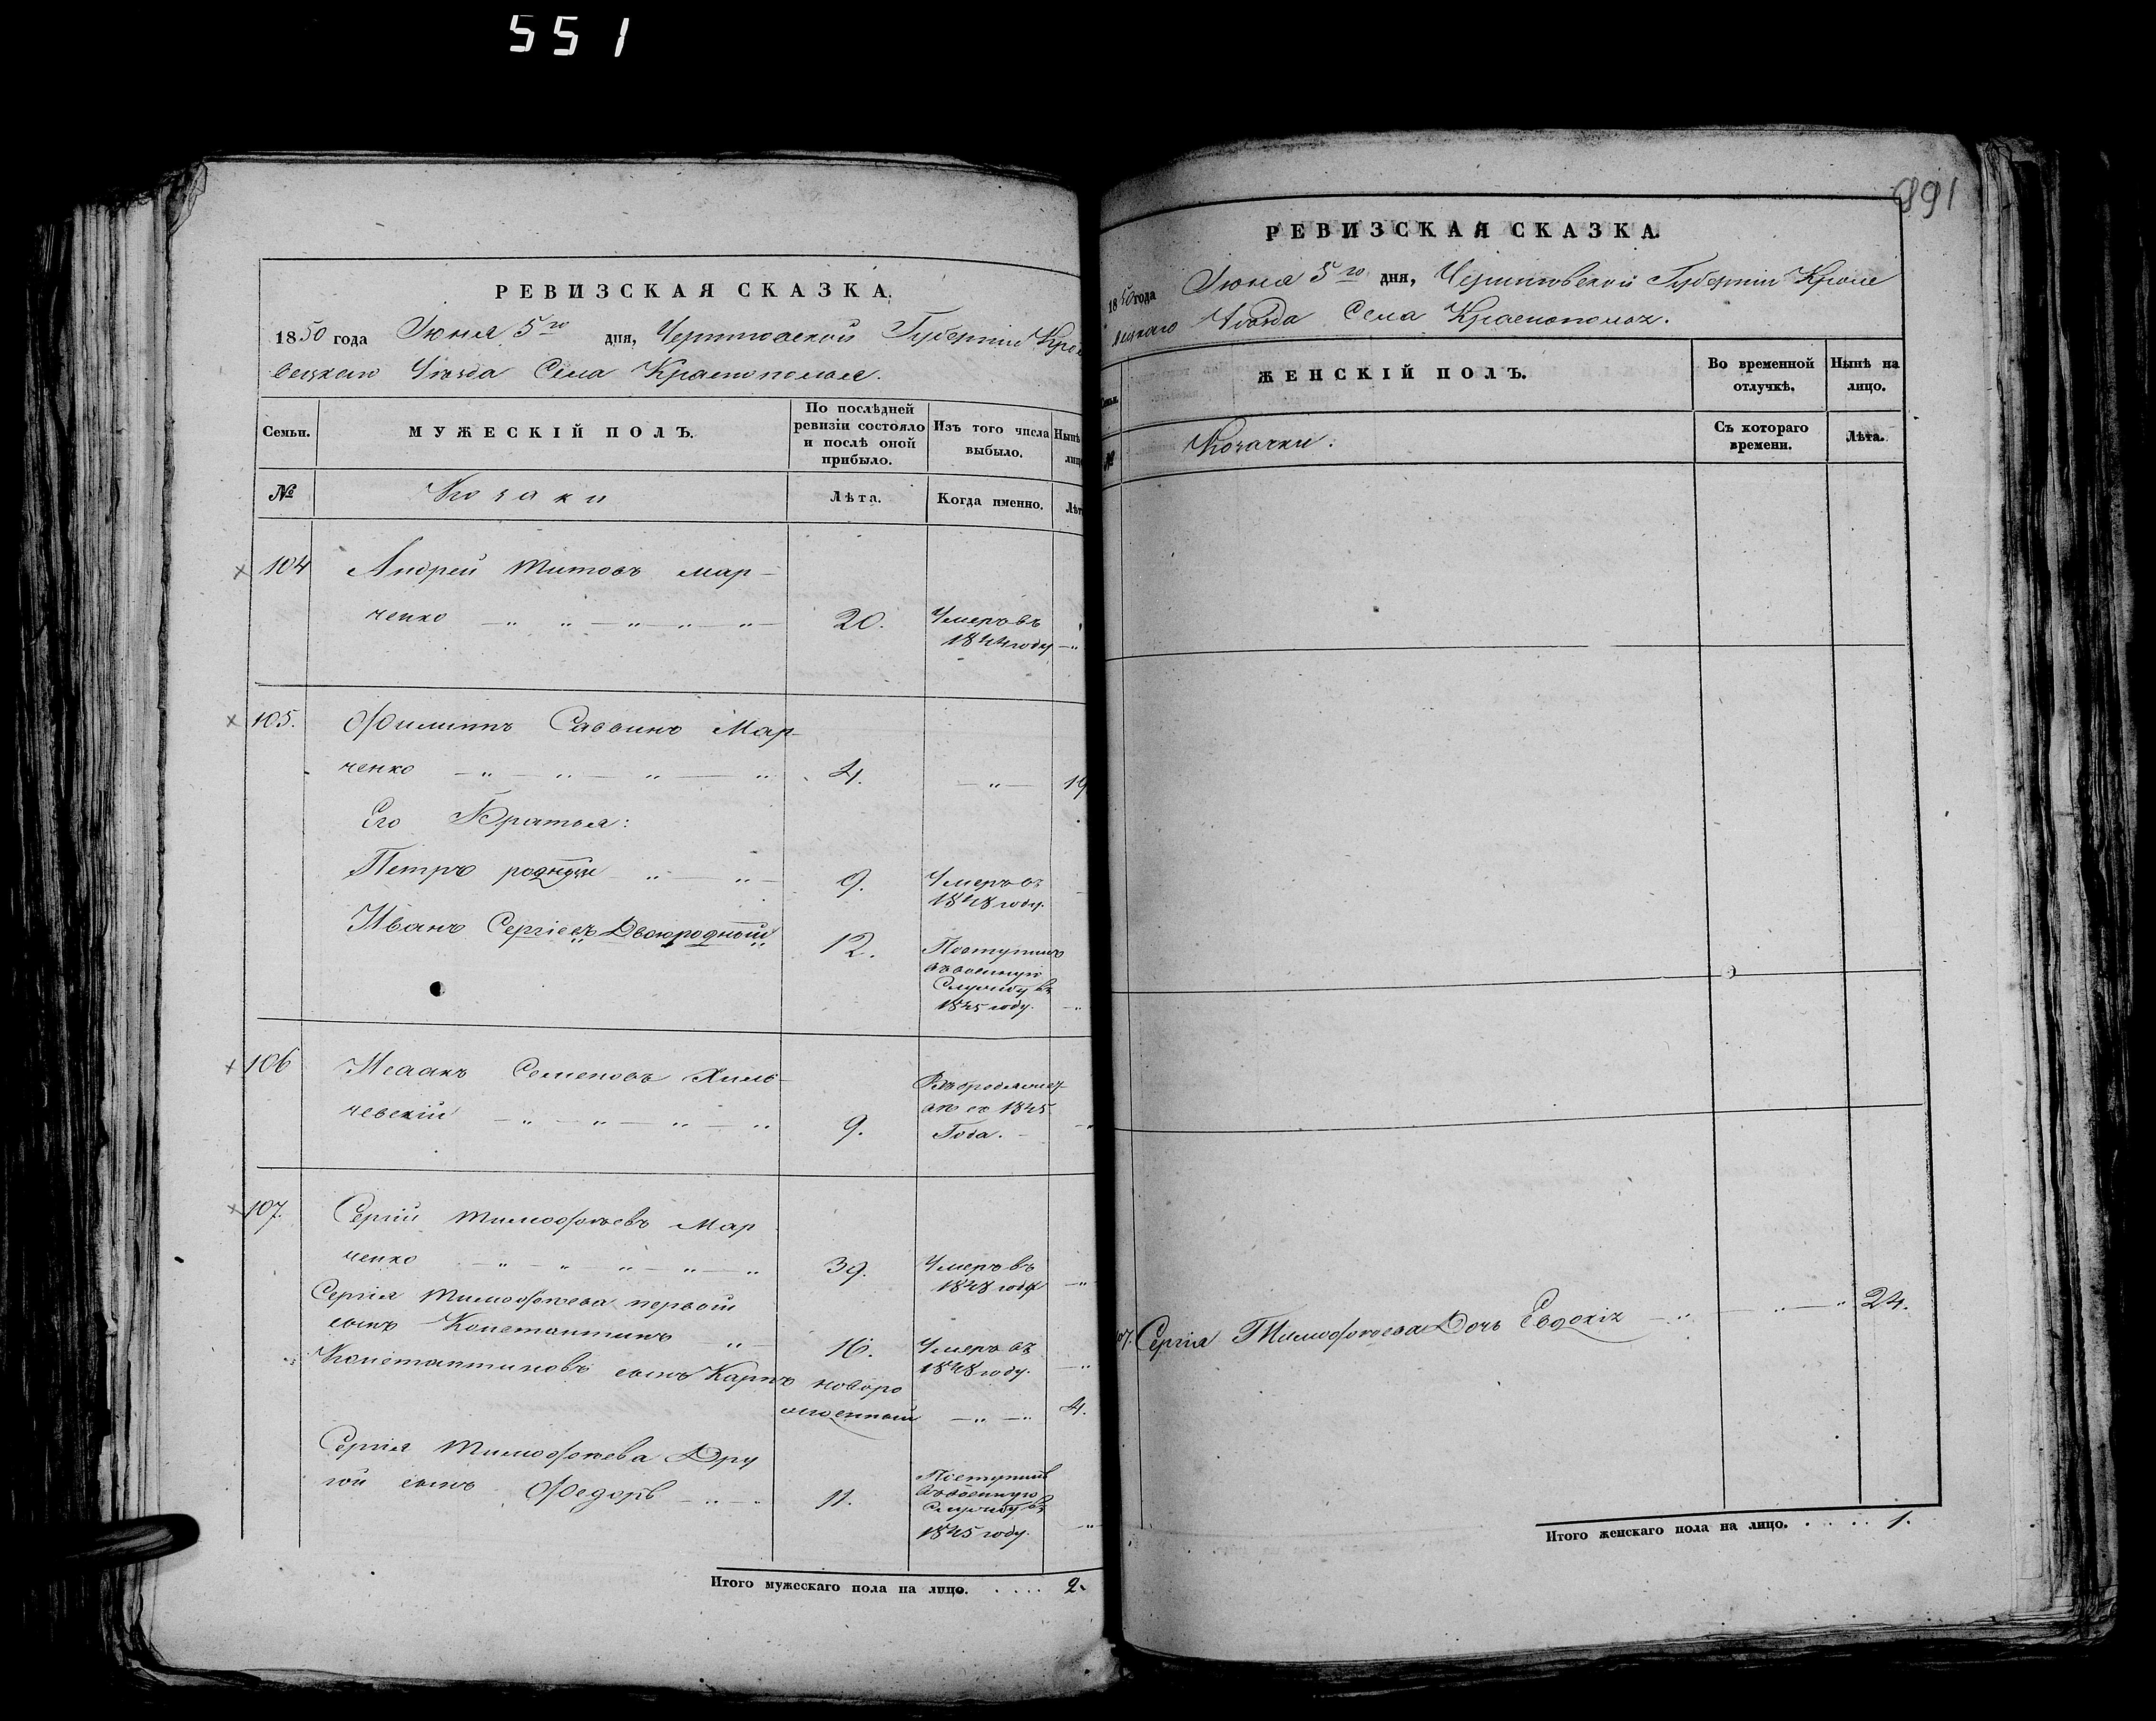 551
РЕВИЗСКАЯ СКАЗКА.
1850 года Іюня 5го дня, Черниговской Губерніи Кроле
вецкаго Уѣзда Села Краснополья.
Семьи.
МУЖЕСКІЙ ПОЛЪ.
По послѣдней ревизіи состояло и послѣ оной прибыло.
Изъ того числа выбыло.
Нынѣ
лиц
№
Козаки
Лѣта.
Когда именно.
Лѣт
104 Андрей Титовъ Мар-
ченко 20. Умеръ въ
1844 году
105. Филиппъ Саввинъ Мар-
ченко 4. 19
Его Братья:
Петръ родный 9. Умеръ въ
1848 году.
Иванъ Сергіевъ Двоюродный 12. Поступилъ
въ военную
Службу въ
1845 году.
106 Исаакъ Семеновъ Хиль-
чевскій 9.
съ 1845
Года.
107. Сергій Тимофѣевъ Мар
ченко 39. Умеръ въ
1848 году
Сергія Тимофѣева первый
сынъ Константинъ 16. Умеръ въ
1848 году.
Константиновъ сынъ Карпъ новоро
жденный 4.
Сергія Тимофѣева Дру
гой сынъ Федоръ 11. Поступилъ
въ военную
Службу въ
1845 году.
Итого мужескаго пола на лицо. . . . . 2.
891
РЕВИЗСКАЯ СКАЗКА.
1850 года Іюня 5го дня, Черниговской Губерніи Кроле
вецкаго Уѣзда Села Краснополья.
Семьи.
ЖЕНСКІЙ ПОЛЪ.
Во временной отлучкѣ.
Нынѣ на лицо.
№
Козачки:
Съ котораго времени.
Лѣта.
107. Сергія Тимофѣева Дочь Евдокія 24.
Итого женскаго пола на лицо. . . . . 1.